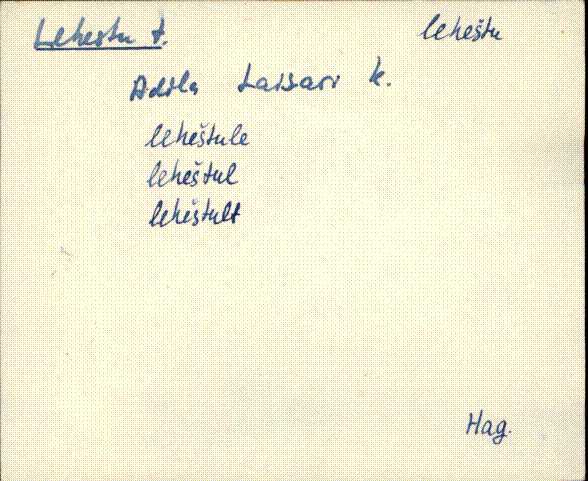 Lehestu t. leheštu
Adila Laisari k.
leheštule
leheštul
leheštult
Hag.